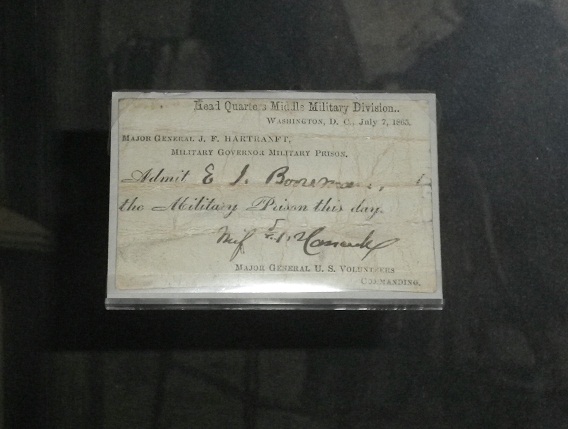 Head Quarters Middle Military Division..
Washington, D. C., July 7, 1865.
Major General J. F. HARTRANFT,
Military Governor Military Prison,
Admit E J.
the Military Prison this day.
Winf S. Hancock
Major General U. S. Volunteers
Commanding.